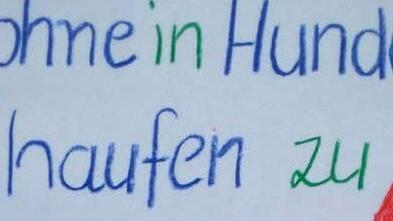 ohne in Hunde
haufen zu